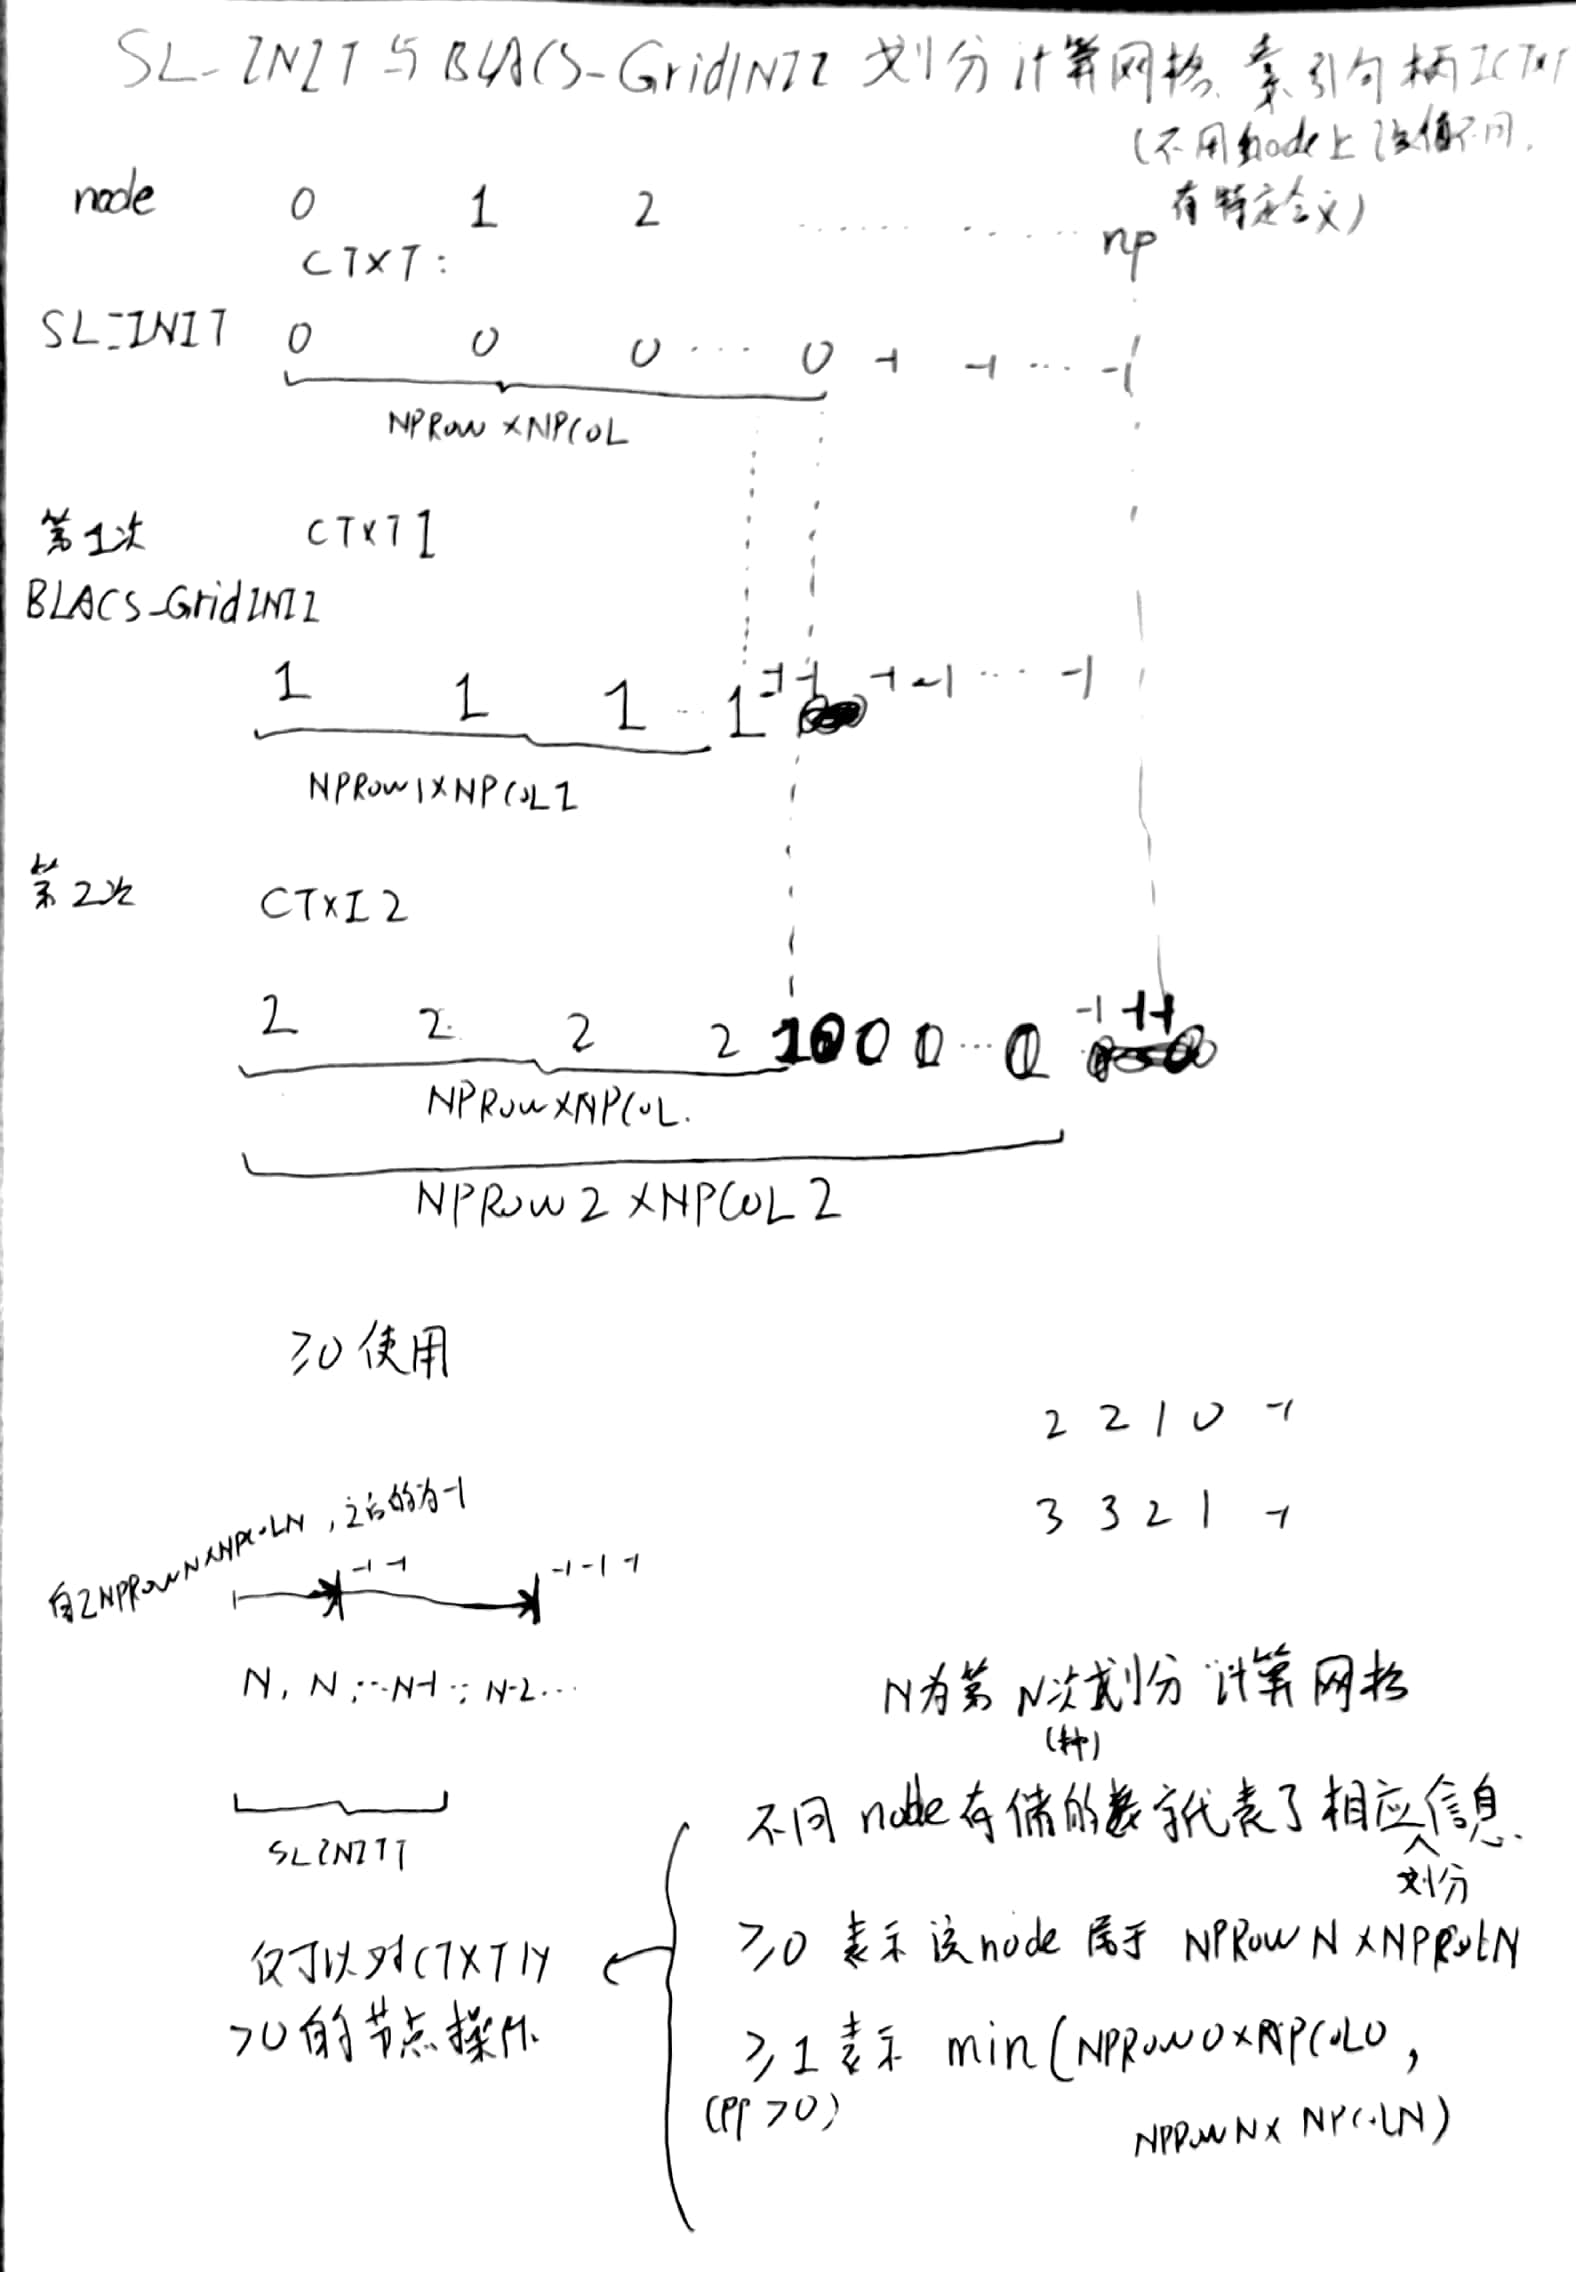 SL-INIT与BLACS-GridINIT 划分计算网格 索引句柄ICTXT
(不用node上该值不同,
有特定含义)
node 0 1 2 ............ np
CTXT:
SL_INIT 0 0 0 ... 0 -1 -1 ... -1
NPRow×NPCOL
第1次 CTXT1
BLACS-GridINIT
1 1 1 ... 1 -1 -1 -1 -1 ... -1
NPRow1×NPCOL1
第2次 CTXT2
2 2 2 2 1 0 0 0 ... 0 -1 -1 -1
NPRow×NPCOL.
NPRow2×NPCOL2
≥0使用
2 2 1 0 -1
3 3 2 1 -1
自2NPRowN×NPCOLN,之后的为-1
-1 -1 -1 -1 -1
N, N, ...N-1 ... N-2...
N为第N次划分计算网格
(种)
不同node存储的数字代表了相应划分信息.
SLINIT
≥0 表示该node属于 NPRowN×NPRoLN
仅可以对CTXT
>0的节点操作.
≥1表示 min(NPRow0×NPCOL0,
(pp>0)
NPRowN×NPCOLN)